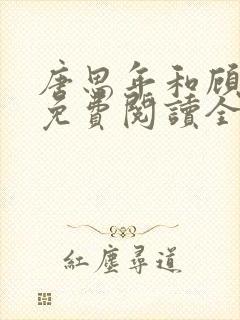 唐思年和顾
免費閱讀全
紅塵尋道